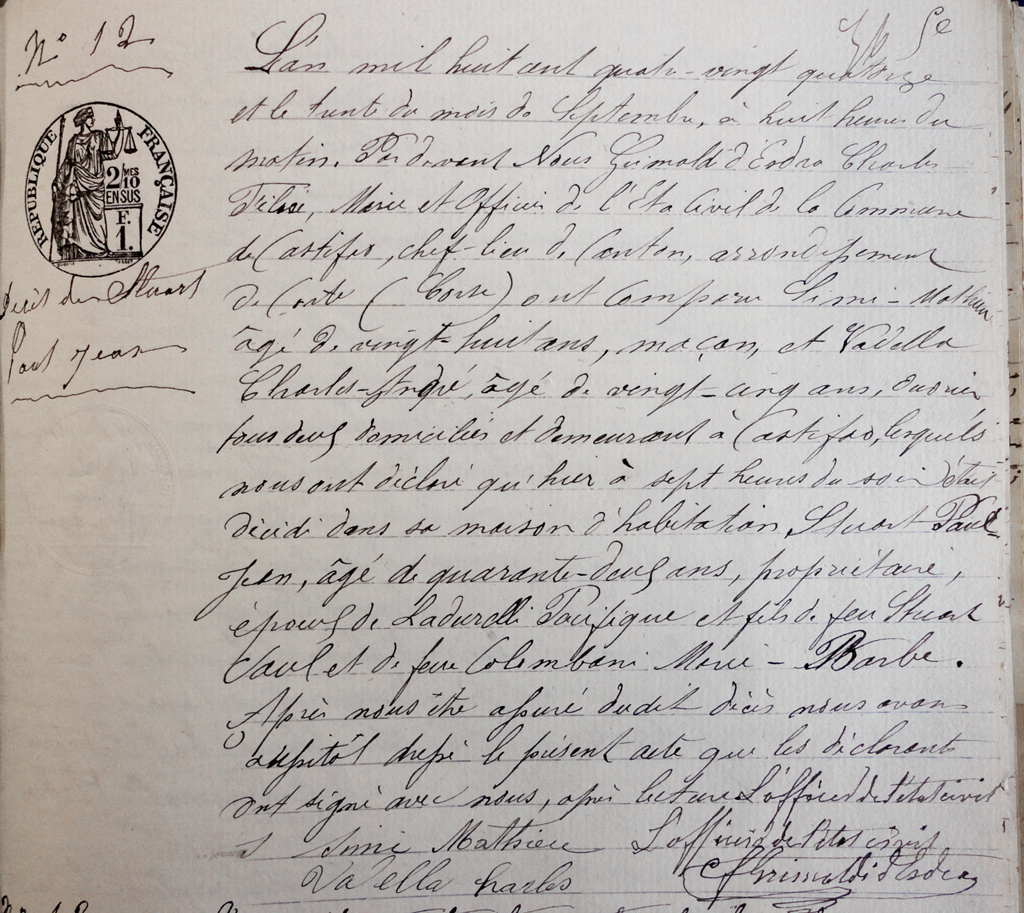 N° 12
RÉPUBLIQUE FRANÇAISE
2 MES
10
EN SUS
F.
1.
décès de Stuart
Paul Jean
L'an mil huit cent quatre-vingt quatorze
et le trente du mois de Septembre, à huit heures du
matin. Pardevant Nous Grimaldi d'Esdra Charles
Félix, Maire et Officier de l'Etat Civil de la Commune
de Castifao, chef-lieu de Canton, arrondissement
de Corte (Corse) ont comparu Simi-Mathieu
âgé de vingt-huit ans, maçon, et Vadella
Charles-André, âgé de vingt-cinq ans, ouvrier
tous deux domiciliés et demeurant à Castifao, lesquels
nous ont déclaré qu'hier à sept heures du soir était
décédé dans sa maison d'habitation, Stuart Paul
Jean, âgé de quarante-deux ans, propriétaire,
époux de Ladurelli Pacifique et fils de feu Stuart
Paul et de feue Colombani Marie-Barbe.
Après nous être assuré dudit décès nous avons
aussitôt dressé le présent acte que les déclarants
ont signé avec nous, après lecture L'officier de l'état civil
Simi Mathieu L'officier de l'état civil
Vadella harles CFGrimaldi d'Esdra